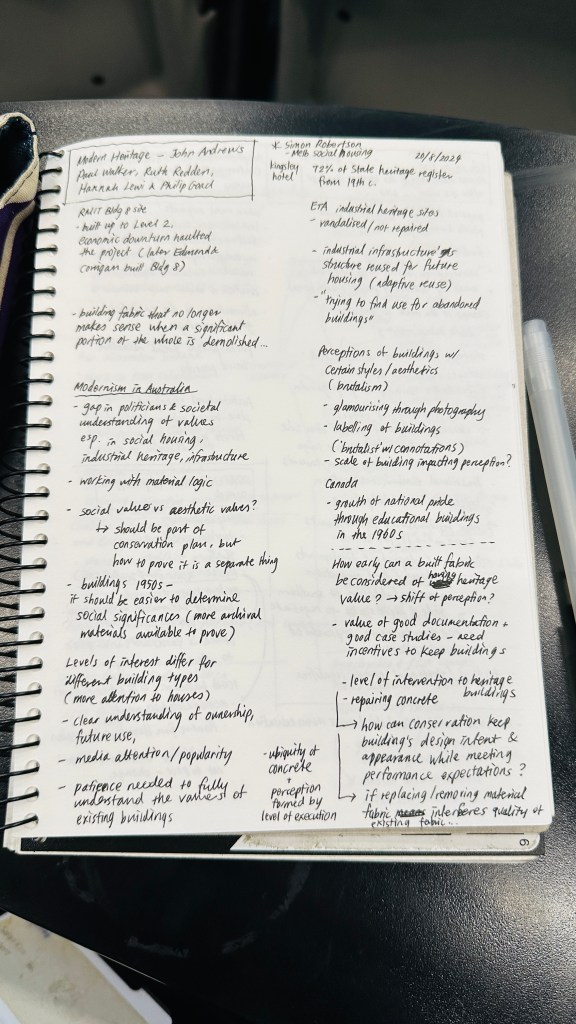 Modern Heritage - John Andrews
Paul Walker, Ruth Redden,
Hannah Lewi & Philip Goad
RMIT Bldg 8 site
- built up to Level 2,
economic downturn haulted
the project (later Edmond &
Corrigan built Bldg 8)
- building fabric that no longer
makes sense when a significant
portion of the whole is demolished...
Modernism in Australia
- gap in politicians & societal
understanding of values
esp. in social housing,
industrial heritage, infrastructure
- working with material logic
- social value vs aesthetic values?
↳ should be part of
conservation plan, but
how to prove it is a separate thing
- buildings 1950s -
it should be easier to determine
social significances (more archival
materials available to prove)
Levels of interest differ for
different building types
(more attention to houses)
- clear understanding of ownership,
future use,
- media attention/popularity
- patience needed to fully
understand the values of
existing buildings
- ubiquity of
concrete
+
perception
formed by
level of execution
* Simon Robertson
- Melb social housing
20/8/2024
Kingsley
hotel
72% of State heritage register
from 19th c.
ETA industrial heritage sites
- vandalised/not repaired
- industrial infrastructure's
structure reused for future
housing (adaptive reuse)
- "trying to find use for abandoned
buildings"
Perceptions of buildings w/
certain styles/aesthetics
(brutalism)
- glamourising through photography
- labelling of buildings
('brutalist' w/ connotations)
- scale of building impacting perception?
Canada
- growth of national pride
through educational buildings
in the 1960s
How early can a built fabric
be considered of having heritage
value? → shift of perception?
- value of good documentation +
good case studies - need
incentives to keep buildings
- level of intervention to heritage
buildings
- repairing concrete
→ how can conservation keep
building's design intent &
appearance while meeting
performance expectations?
→ if replacing/removing material
fabric interferes quality of
existing fabric...
6